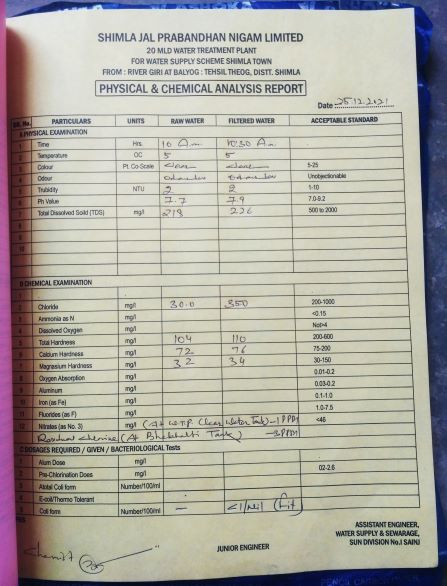 SHIMLA JAL PRABANDHAN NIGAM LIMITED
20 MLD WATER TREATMENT PLANT
FOR WATER SUPPLY SCHEME SHIMLA TOWN
FROM : RIVER GIRI AT BALYOG : TEHSIL THEOG, DISTT. SHIMLA
PHYSICAL & CHEMICAL ANALYSIS REPORT
Date 25.12.2021
No. PARTICULARS UNITS RAW WATER FILTERED WATER ACCEPTABLE STANDARD
A PHYSICAL EXAMINATION
1 Time Hrs. 10 A.m 10:30 A.m
2 Temperature OC 5 5
3 Colour Pt. Co-Scale clear clear 5-25
4 Odour Odourless Odourless Unobjectionable
5 Trubidity NTU 2 2 1-10
6 Ph Value 7.7 7.9 7.0-9.2
7 Total Dissolved Soild (TDS) mg/l 218 226 500 to 2000
8
9
10
CHEMICAL EXAMINATION
1
2 Chloride mg/l 30.0 350 200-1000
3 Ammonia as N mg/l <0.15
4 Dissolved Oxygen mg/l Not>4
5 Total Hardness mg/l 104 110 200-600
6 Calcium Hardness mg/l 72 76 75-200
7 Magnasium Hardness mg/l 32 34 30-150
8 Oxygen Absorption mg/l 0.01-0.2
9 Aluminum mg/l 0.03-0.2
10 Iron (as Fe) mg/l 0.1-1.0
11 Fluorides (as F) mg/l 1.0-7.5
12 Nitrates (as No. 3) mg/l (At W.T.P. Clear Water Tank)-1PPM <45
(At Tank) PPM
C DOSAGES REQUIRED / GIVEN / BACTERIOLOGICAL Tests
1 Alum Dose mg/l
2 Pre-Chlorination Does mg/l 02-2.6
3 Atotal Coli form Number/100/ml
4 E-coli/Thermo Tolerant
5 Coli form Number/100/ml - <1/Nil (Fit)
Chemist
JUNIOR ENGINEER
ASSISTANT ENGINEER,
WATER SUPPLY & SEWARAGE,
SUN DIVISION No.I SAINJ